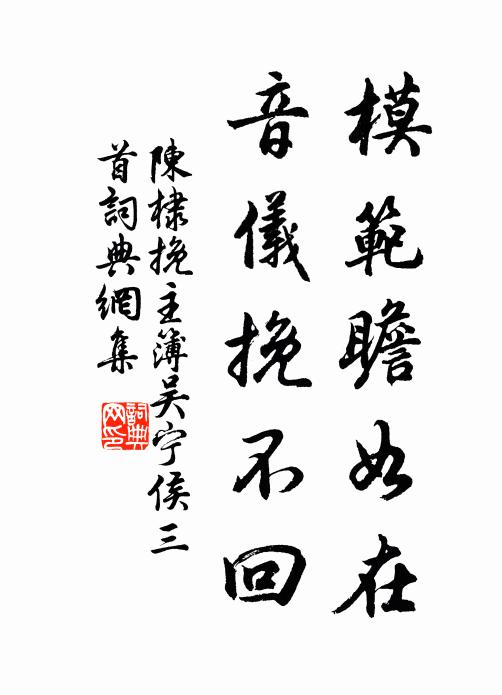 模範瞻如在
音儀挽不回
陳棣挽主簿吴宁侯三
首詞典網集
詞典网印